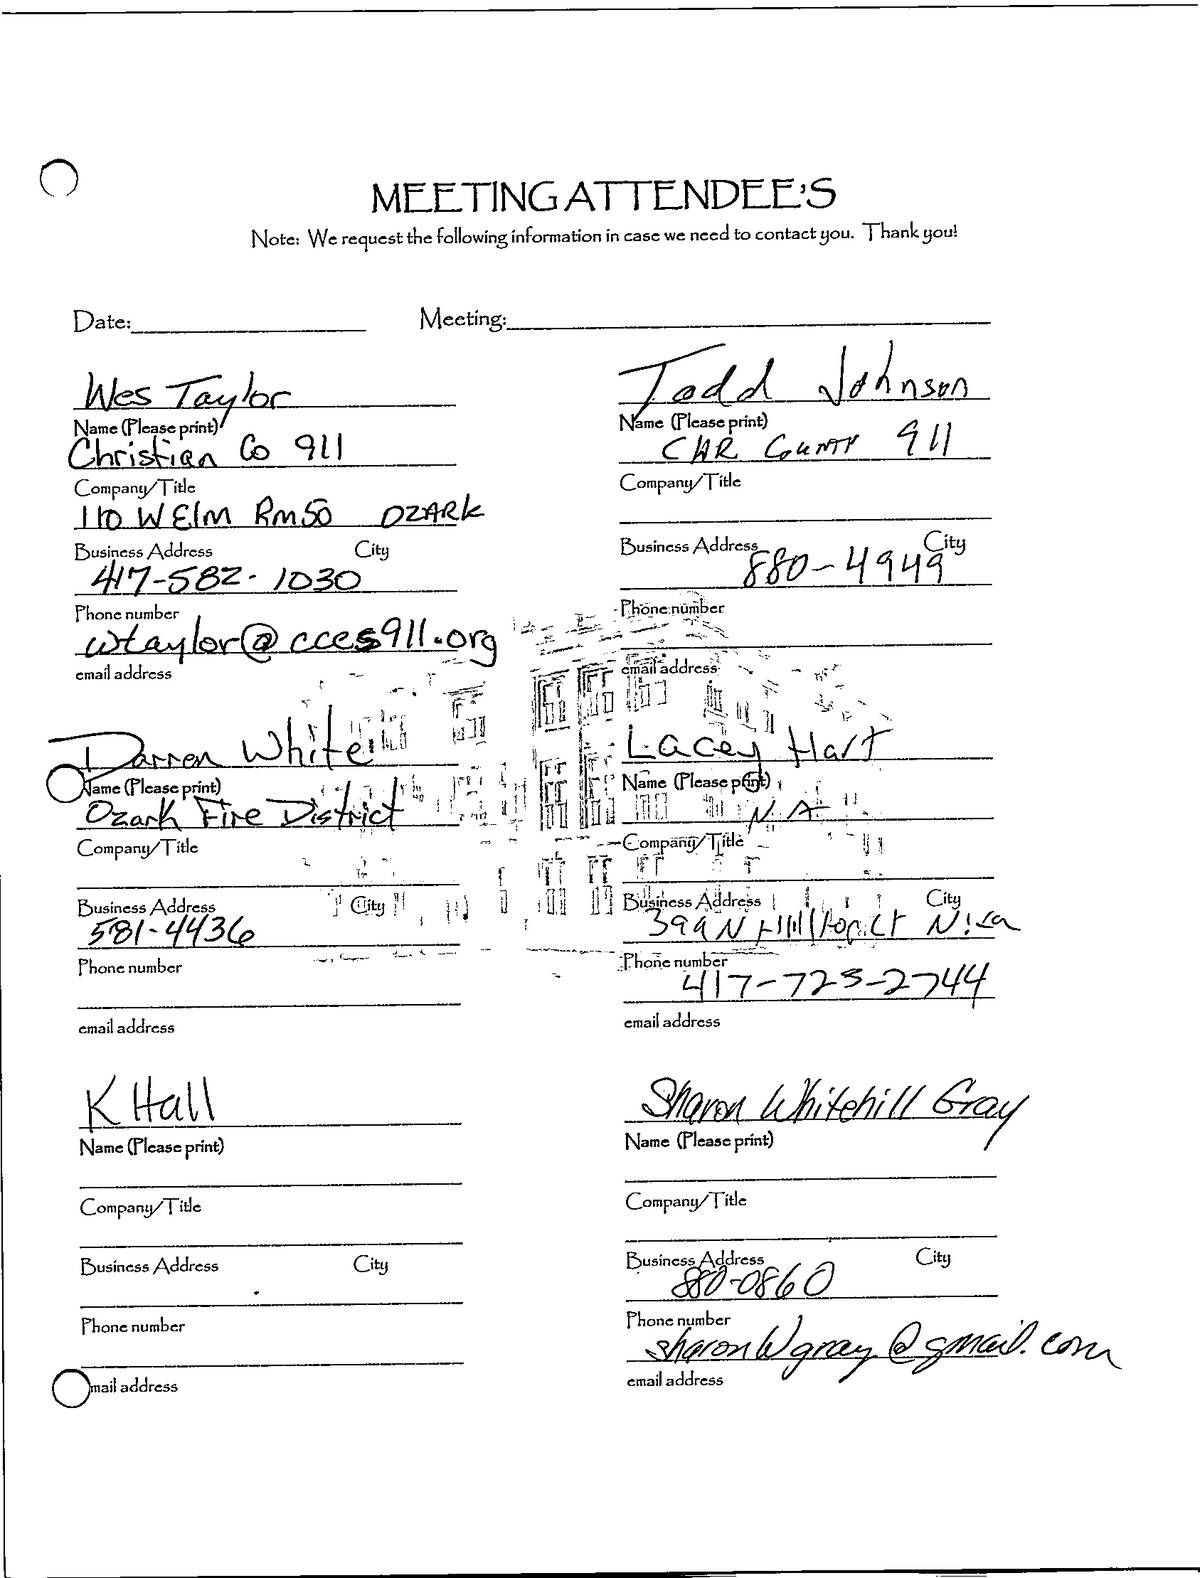 MEETING ATTENDEE'S
Note: We request the following information in case we need to contact you. Thank you!
Date: Meeting:
Wes Taylor
Name (Please print)
Christian Co 911
Company/Title
110 W Elm Rm 50 OZARK
Business Address City
417-582-1030
Phone number
wtaylor@cces911.org
email address
Todd Johnson
Name (Please print)
CHR County 911
Company/Title
Business Address City
880-4949
Phone number
email address
Darren White
Name (Please print)
Ozark Fire District
Company/Title
Business Address City
581-4436
Phone number
email address
Lacey Hart
Name (Please print)
N A
Company/Title
Business Address City
399 N Hilltop Ct Nixa
Phone number
417-723-2744
email address
K Hall
Name (Please print)
Company/Title
Business Address City
Phone number
mail address
Sharon Whitehill Gray
Name (Please print)
Company/Title
Business Address City
880-0860
Phone number
sharonWgray@gmail.com
email address